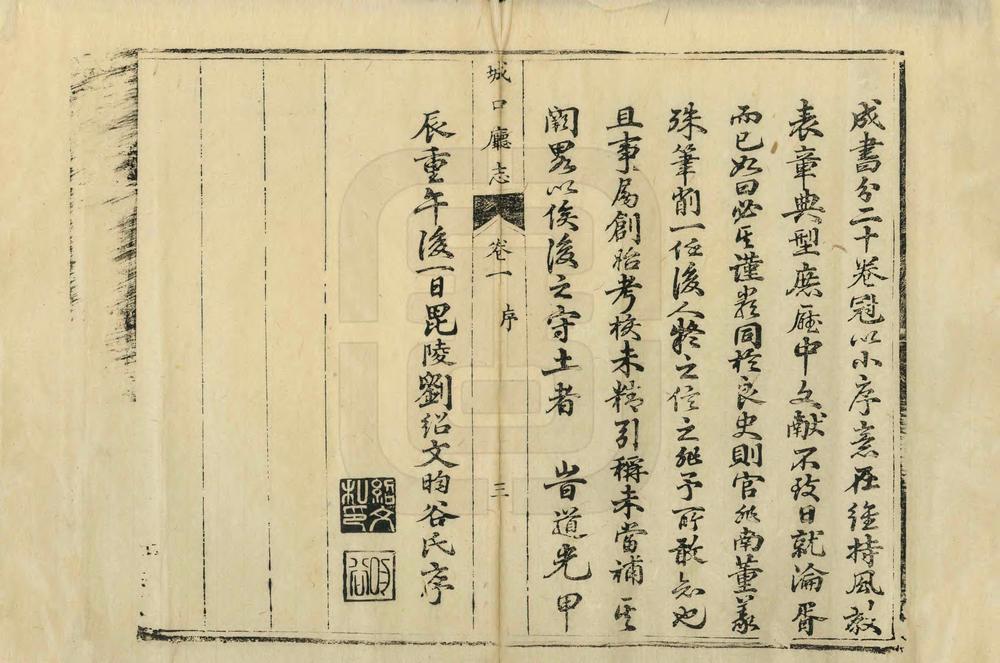 成書分二十卷冠以小序意在維持風教
表章典型庶厯中文獻不致日就淪胥
而已如曰必其謹嚴同於良史則官非南董義
殊筆削一任後人疑之信之非予所敢知也
且事屬創始考校未精引稱未當補其
闕畧以俟後之守土者 旹道光甲
辰重午後一日毘陵劉紹文昀谷氏序
城口廳志 卷一 序 三
紹文私印
昀谷